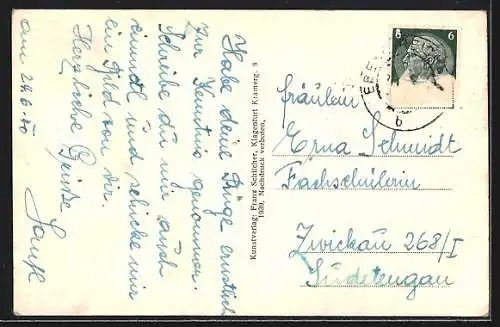 Habe deine Frage ernstlich
Zur Kentnis genommen.
Schreibe du mir auch
einmal und schicke mir
ein Bild von dir.
Herzliche Grüsse
am 29.6.40
Kunstverlag: Franz Schilcher, Klagenfurt Kramerg. 8
1939, Nachdruck verboten.
6 6
EBE
b
Fräulein
Erna Schmidt
Fachschülerin
Zwickau 268/I
Sudetengau